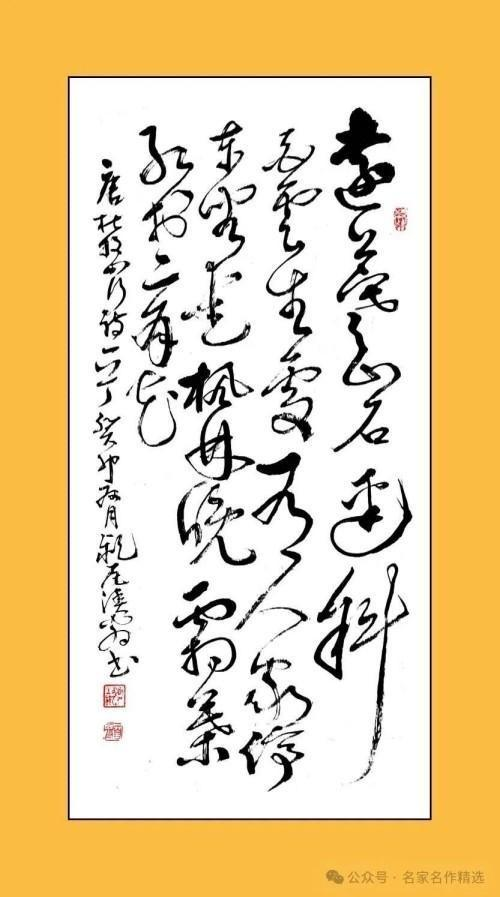 遠上寒山石径斜
白雲生處有人家停
車坐爱枫林晚霜葉
红於二月花
唐杜牧山行诗一首癸卯月书
公众号 · 名家名作精选